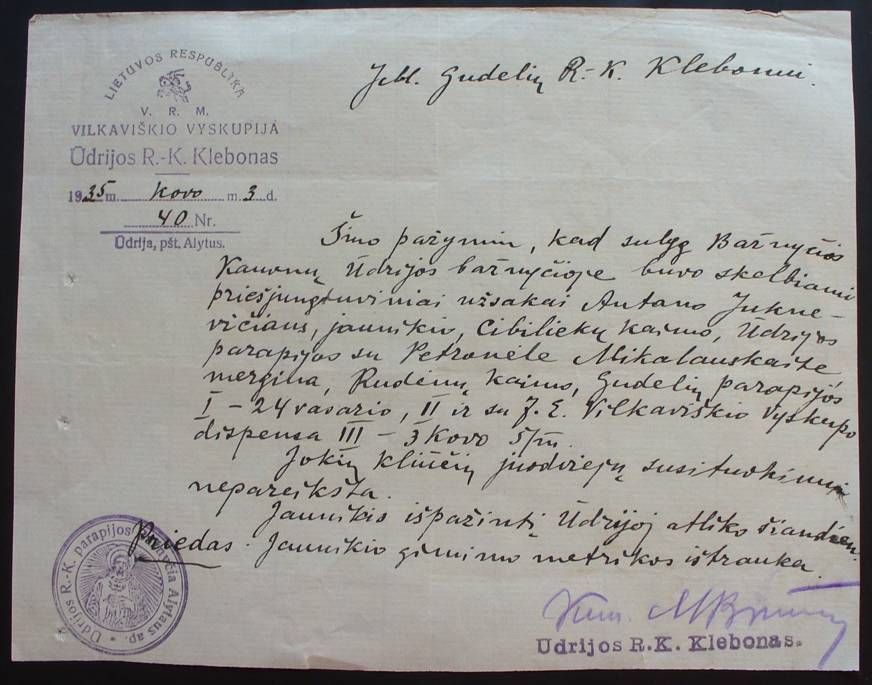 LIETUVOS RESPUBLIKA
V. R. M.
VILKAVIŠKIO VYSKUPIJA
Ūdrijos R.-K. Klebonas
1935 m. Kovo m. 3 d.
40 Nr.
Ūdrija, pšt. Alytus.
Jebl. Gudelių R.-K. Klebonui.
Šiuo pažymiu, kad sulyg Bažnyčios
Kanonų Ūdrijos bažnyčioje buvo skelbiami
priešjungtuviniai užsakai Antano Jukne-
vičiaus, jaunikio, Cibiliekų kaimo, Ūdrijos
parapijos su Petronėle Mikalauskaite
mergina, Rudėnų kaimo, Gudelių parapijos
I – 24 vasario, II ir su J. E. Vilkaviškio Vyskupo
dispensa III – 3 Kovo š/m.
Jokių kliūčių juodviejų susituokimui
nepareikšta.
Jaunikis išpažintį Ūdrijoj atliko šiandien.
Priedas: Jaunikio gimimo metrikos ištrauka.
Ūdrijos R.-K. parapijos bažnyčia Alytaus ap.
Kun.
Ūdrijos R.K. Klebonas.